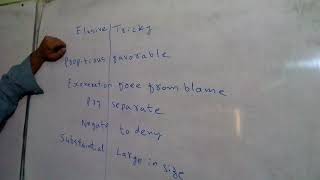 Elusive Tricky
Propitious favorable
Exoneration free from blame
Pry separate
Negate to deny
Substantial Large in size